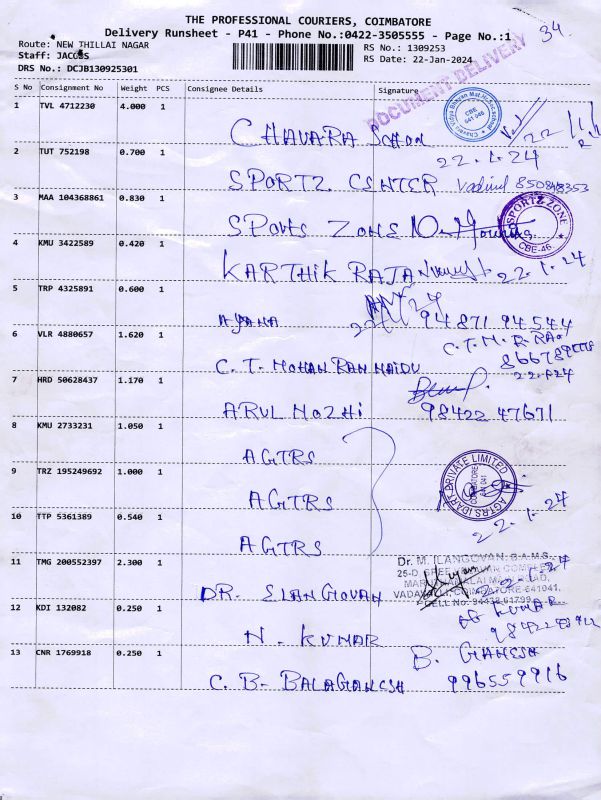 THE PROFESSIONAL COURIERS, COIMBATORE
Delivery Runsheet - P41 - Phone No.:0422-3505555 - Page No.:1
34.
Route: NEW THILLAI NAGAR
Staff: JACOBS
DRS No.: DCJB130925301
RS No.: 1309253
RS Date: 22-Jan-2024
DOCUMENT DELIVERY
S No Consignment No Weight PCS Consignee Details Signature
1 TVL 4712230 4.000 1
CHAVARA
CBE
641 046
22.1.24
2 TUT 752198 0.700 1
SPORTZ CENTER
3 MAA 104368861 0.830 1
Sports ZONE
SPORTZ ZONE
CBE-46.
4 KMU 3422589 0.420 1
KARTHIK RAJA 22.1.24
5 TRP 4325891 0.600 1
94871 94544
6 VLR 4880657 1.620 1
C.T. MOHAN RAM NAIDU
C.T.M.R.
7 HRD 50628437 1.170 1
ARUL MOZHI 98422 47671
8 KMU 2733231 1.050 1
AGTRS
9 TRZ 195249692 1.000 1
AGTRS
AGTRS IDARK PRIVATE LIMITED
COIMBATORE
641 041
10 TTP 5361389 0.540 1
AGTRS 22.1.24
11 TMG 200552397 2.300 1
DR. ELANGOVAN
Dr. M. ILANGOVAN, B.A.M.S.,
VADAVALLI, COIMBATORE-641041.
12 KDI 132082 0.250 1
N. KUMAR
KUMAR
13 CNR 1769918 0.250 1
C. B. BALAGANESH
B. GANESH
996559916